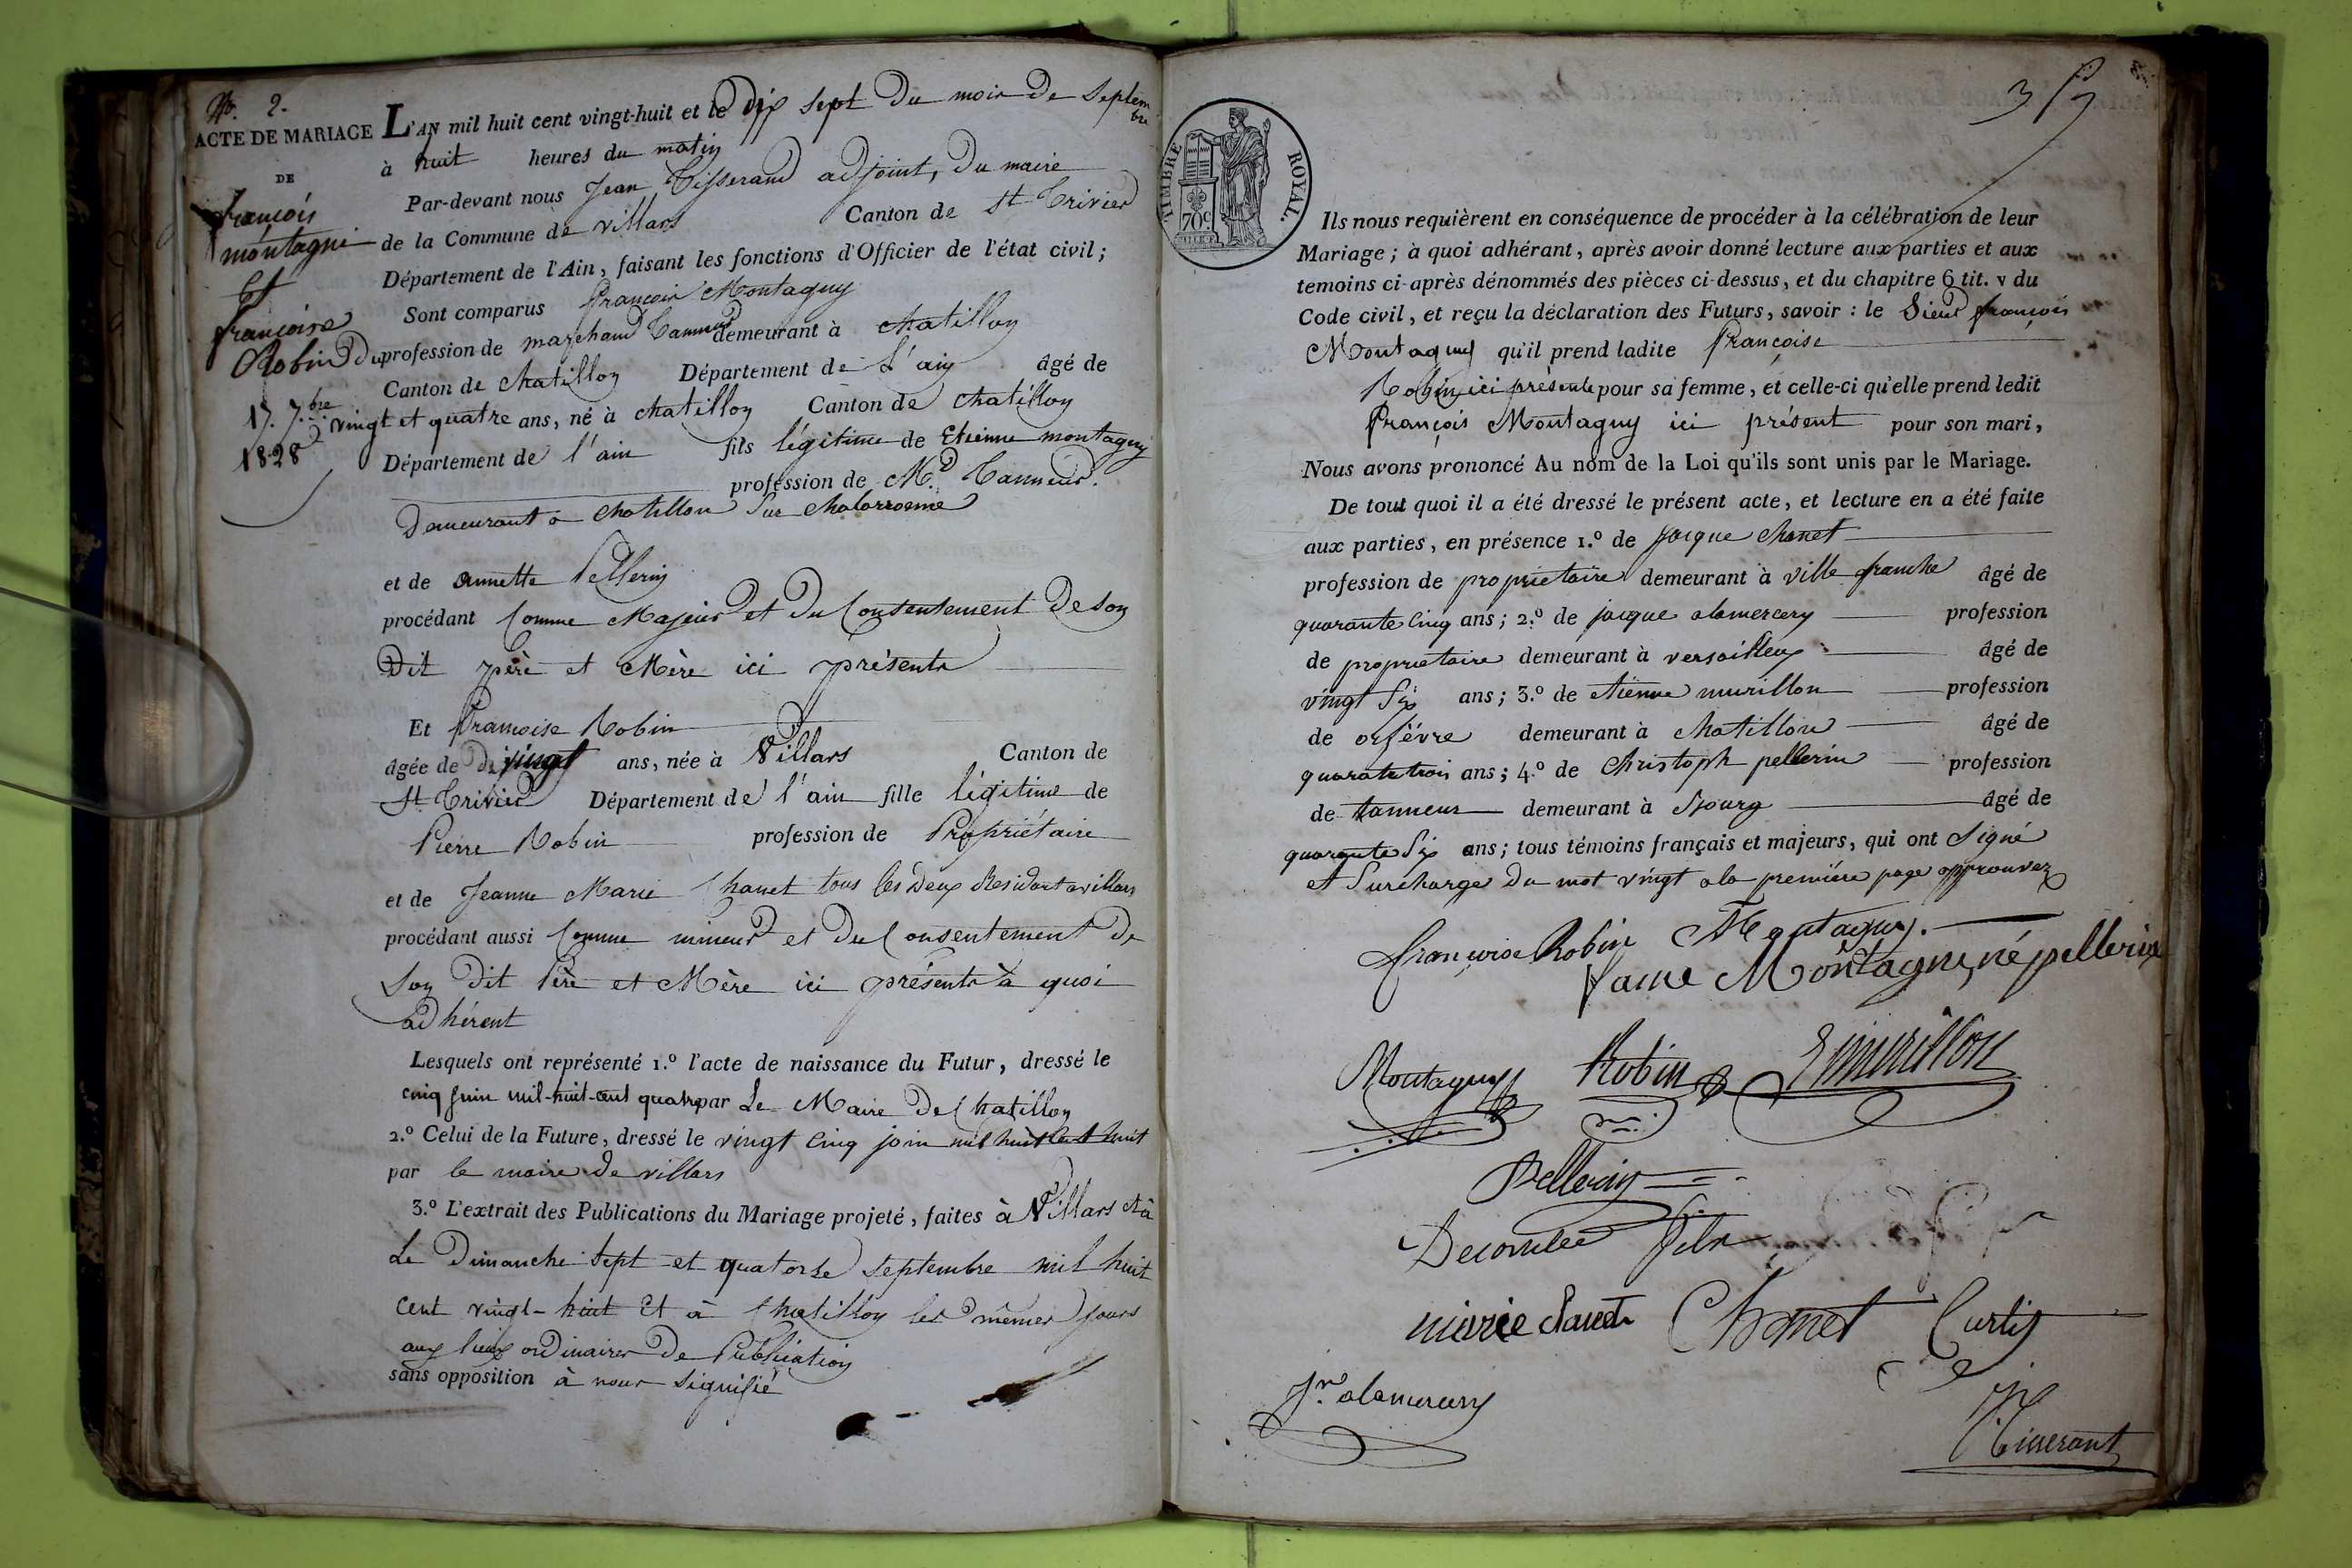 No. 2.
ACTE DE MARIAGE
DE
françois
montagni
Et
françoise
Robin Du
17. 7.bre
1828
L'AN mil huit cent vingt-huit et le Dix sept Du mois De Septem
bre
à huit heures du matin
Par-devant nous Jean Tisserand adjoint, Du maire
de la Commune de villars Canton de St Trivier
Département de l'Ain, faisant les fonctions d'Officier de l'état civil;
Sont comparus François Montagny
profession de marchand Tanneur demeurant à chatillon
Canton de chatillon Département de L'ain âgé de
vingt et quatre ans, né à chatillon Canton de chatillon
Département de l'ain fils légitime de Etienne montagny
profession de M.d Tanneur.
Demeurant a chatillon Sur chalaronne
et de annette Pellerin
procédant Comme Majeur et Du Consentement De son
Dit père et Mère ici présents
Et françoise Robin
âgée de vingt ans, née à Villars Canton de
St Trivier Département de l'ain fille légitime de
Pierre Robin profession de Propriétaire
et de Jeanne Marie Chanet tous les Deux Residant a villars
procédant aussi Comme mineur et Du Consentement De
Son Dit Père et Mère ici présents à quoi
adhérent
Lesquels ont représenté 1.º l'acte de naissance du Futur, dressé le
cinq juin mil-huit-cent quatre par Le Maire De Chatillon
2.º Celui de la Future, dressé le vingt Cinq join mil huit cent huit
par le maire de villars
3.º L'extrait des Publications du Mariage projeté, faites à Villars et à
Le Dimanche Sept et quatorse Septembre mil huit
cent vingt-huit Et à Chatillon les mêmes jours
aux lieux ordinaires De Publication
sans opposition à nous signifié
3
TIMBRE ROYAL.
70c
Ils nous requièrent en conséquence de procéder à la célébration de leur
Mariage; à quoi adhérant, après avoir donné lecture aux parties et aux
temoins ci-après dénommés des pièces ci-dessus, et du chapitre 6 tit. v du
Code civil, et reçu la déclaration des Futurs, savoir : le Sieur françois
Montagny qu'il prend ladite Françoise
Robin ici présente pour sa femme, et celle-ci qu'elle prend ledit
François Montagny ici présent pour son mari,
Nous avons prononcé Au nom de la Loi qu'ils sont unis par le Mariage.
De tout quoi il a été dressé le présent acte, et lecture en a été faite
aux parties, en présence 1.º de Jacque chanet
profession de proprietaire demeurant à ville franche âgé de
quarante Cinq ans; 2.º de jacque alamercery profession
de proprietaire demeurant à versailleux âgé de
vingt Six ans; 3.º de etienne murillon profession
de orfévre demeurant à chatillon âgé de
quarate trois ans; 4.º de christoph pellerin profession
de tanneur demeurant à Bourg âgé de
quarante Six ans; tous témoins français et majeurs, qui ont Signé
et Surcharge du mot vingt a la première page approuvez
françoise Robin Montagny.
fame Montagny, né pellerin
Montagny Robin Emurillon
Pellerin
Decomble fils
mirie chanet Chanet Curtis
Jn alamercery
Tisserant